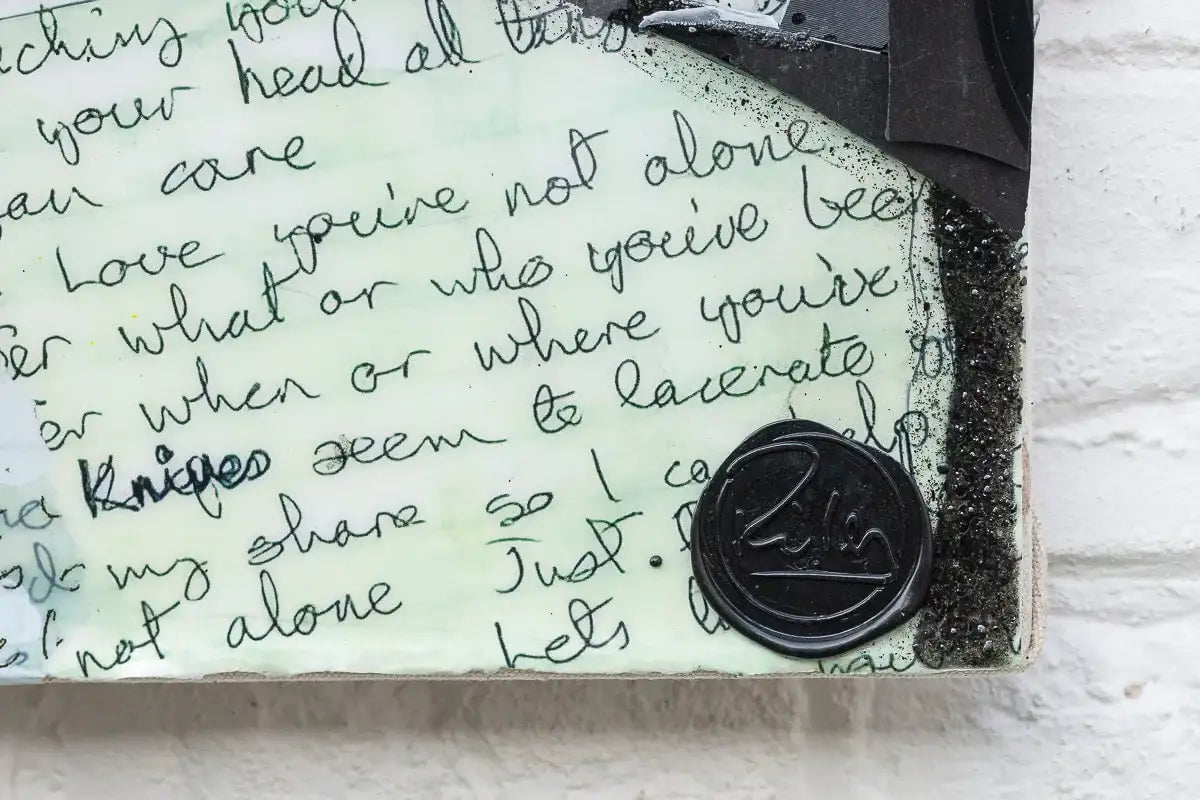 your
your head all
care
Love you're not alone
what or who you've bee
er when or where you've
Knives seem to lacerate
my share so I ca elp.
not alone Just.
Lets
Riley